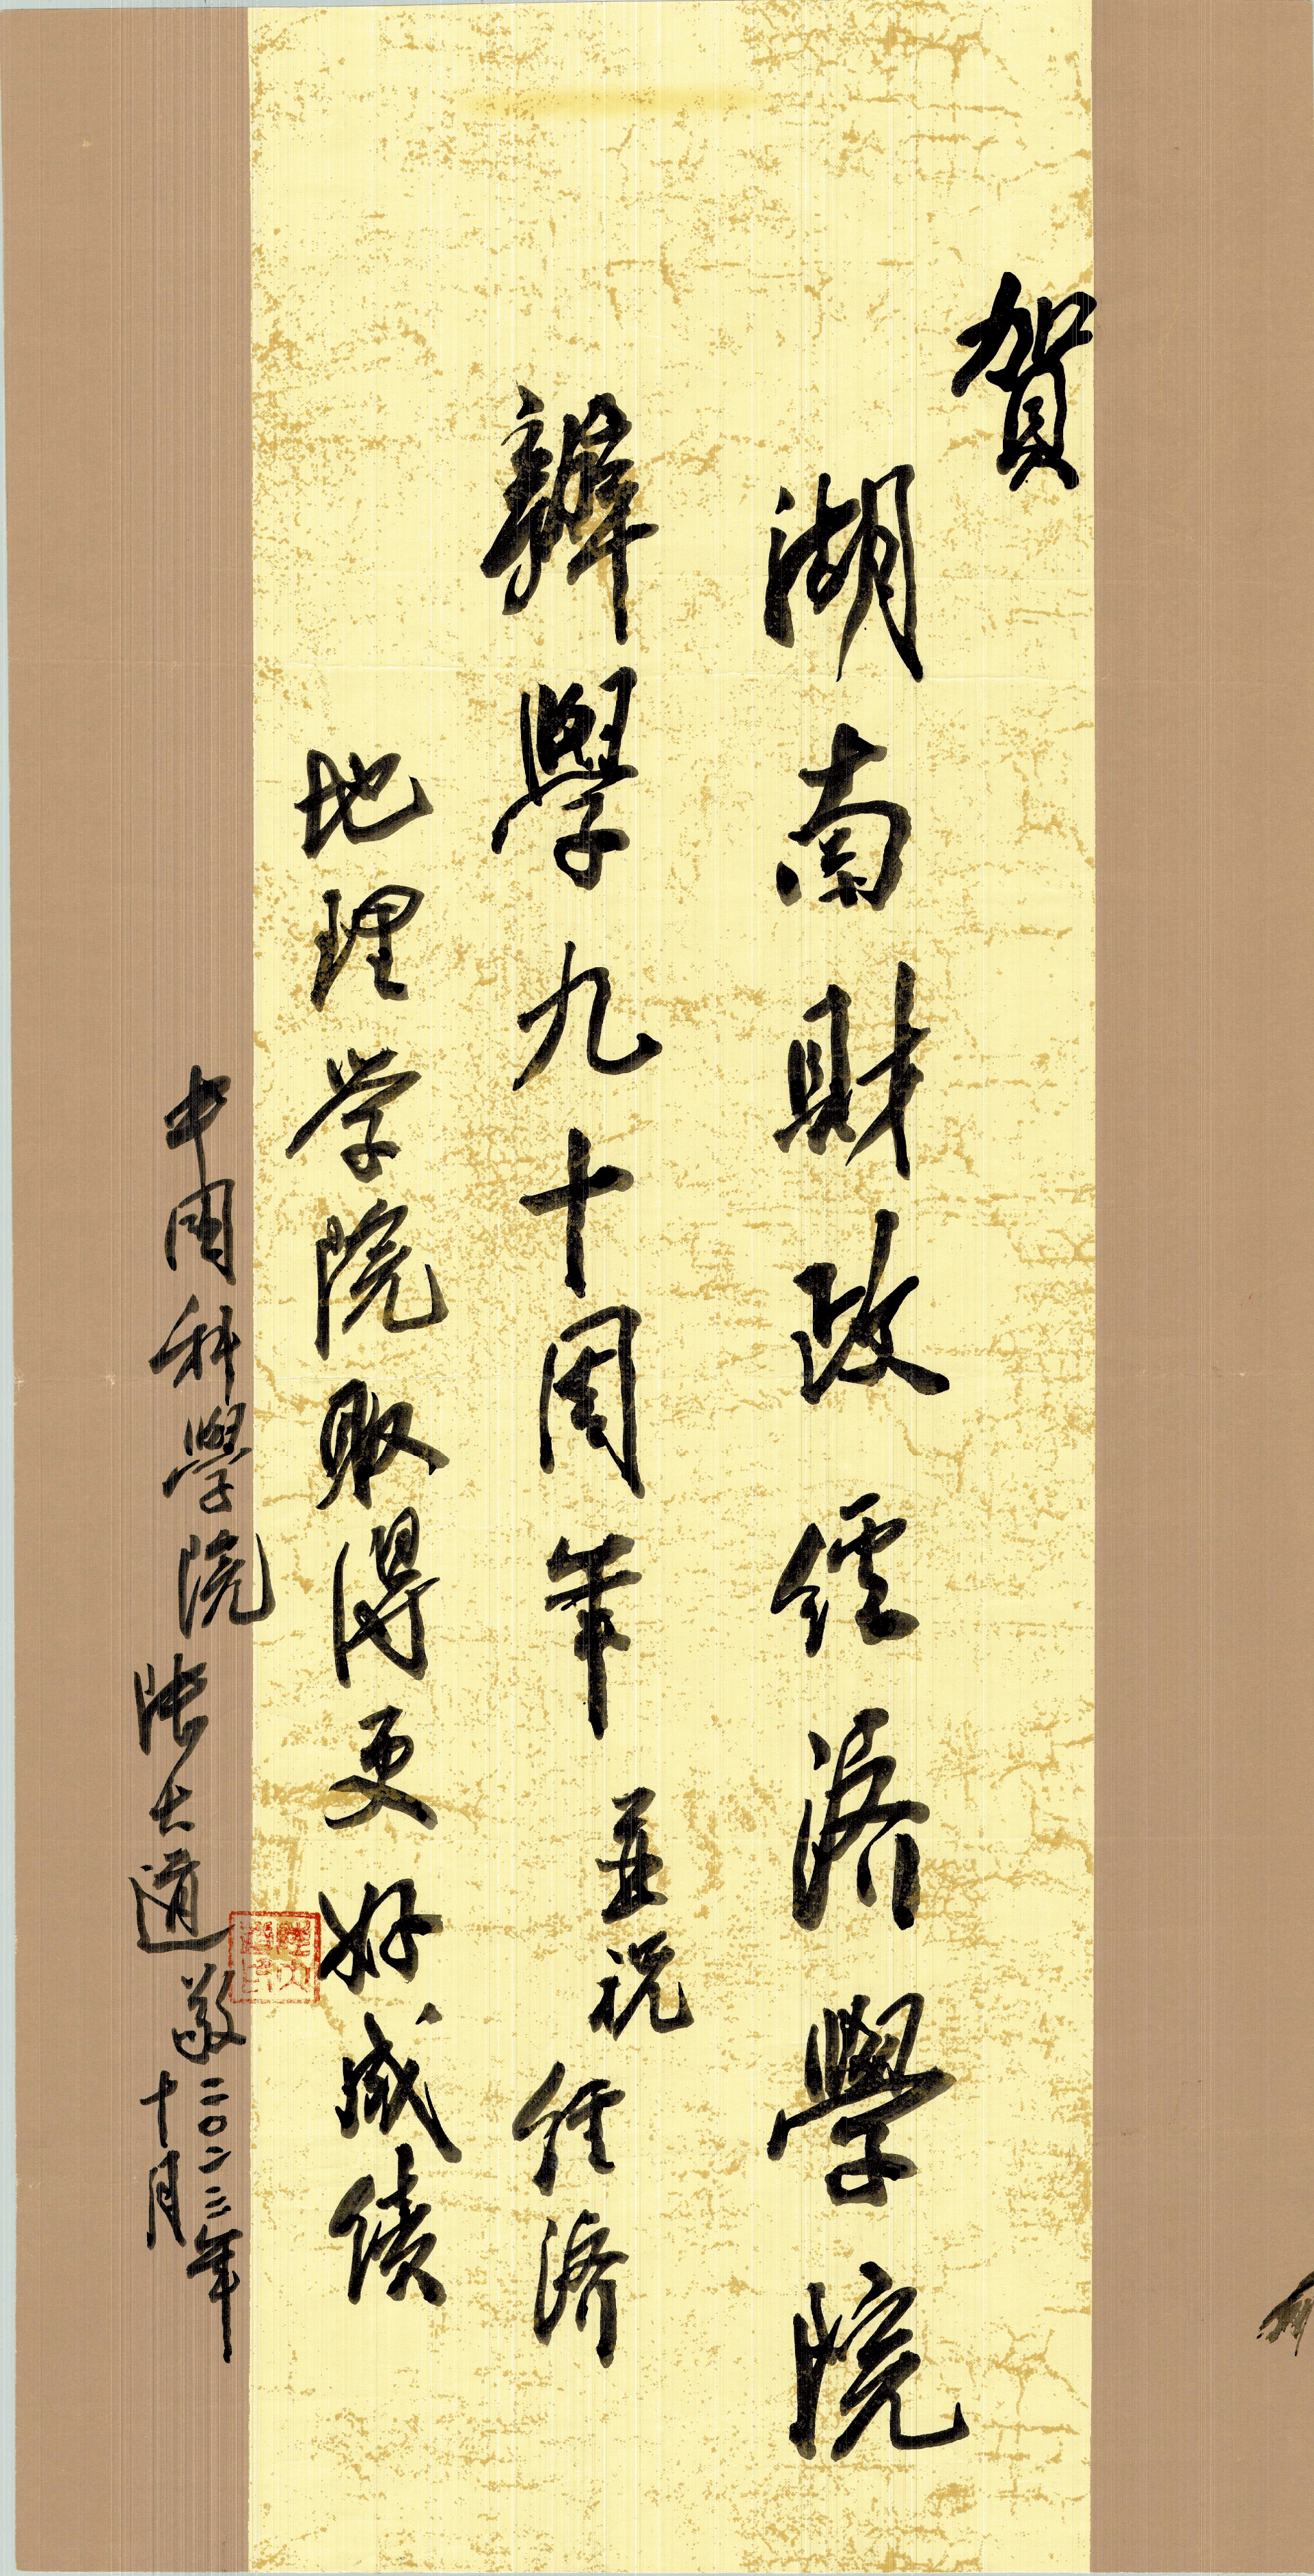 賀
湖南財政經濟學院
辦學九十周年 並祝 经济
地理学院取得更好成绩
中国科學院 陆大道 敬
二〇二三年
十月